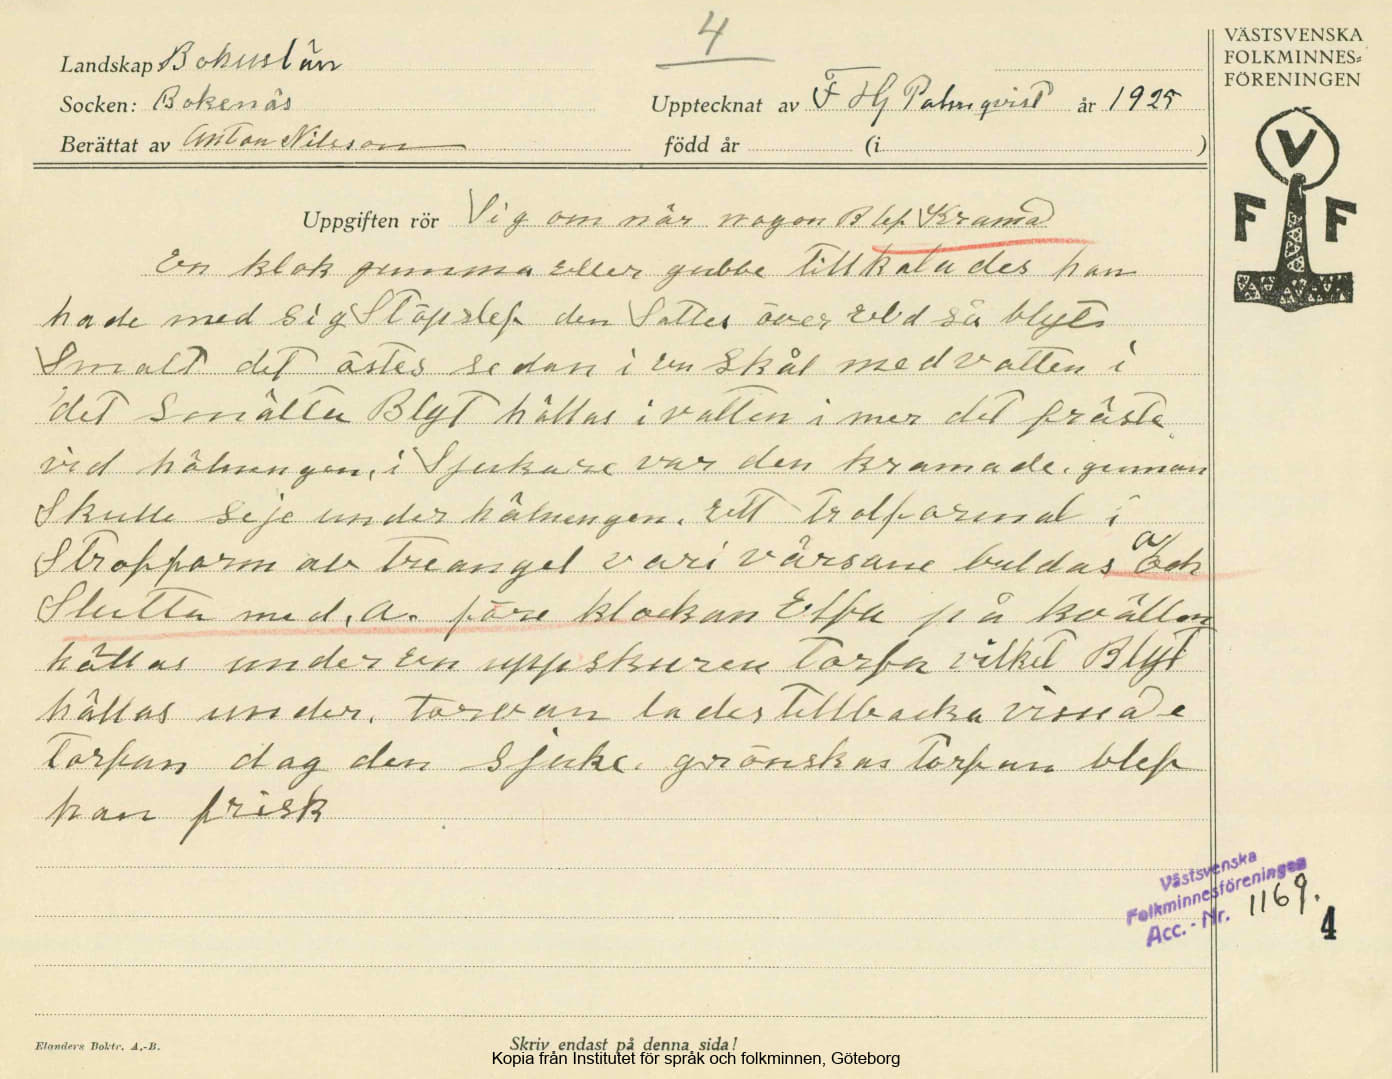 4
Landskap Bohuslän
Socken: Bokenäs
Upptecknat av F Hj Palmqvist år 1925
Berättat av Anton Nilsson
född år (i )
VÄSTSVENSKA
FOLKMINNES=
FÖRENINGEN
V
F F
Uppgiften rör Sig om när nogon Blef Kramad
En klok gumma eller gubbe tillkalades han
hade med sig Stöpslef den Sattes över eld så blyt
Smalt det östes sedan i en Skål med vatten i
det Smälta Blyt hällas i vatten i mer det fräste
vid hälnengen, i Sjukare var den kramade. gumman
Skulle seje under hälnengen. ett trolformel i
Strofform av treangel vari värsane buldas a Och
Slutta med, a. före klockan Elfa på kvällen
hällas under en uppskuren torfa vilket Blyt
hällas under. torvan lades tillbacka visnade
torfan dog den sjuke. grönskas torfan blef
han frisk
Västsvenska
Folkminnesföreningen
Acc.-Nr. 1169.
4
Elanders Boktr. A.-B.
Skriv endast på denna sida!
Kopia från Institutet för språk och folkminnen, Göteborg